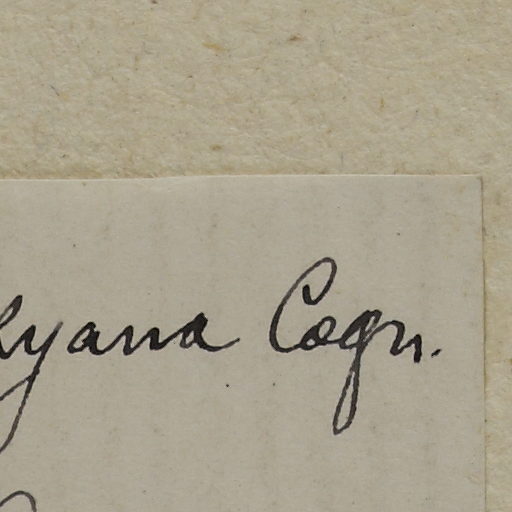 yana Cogn.